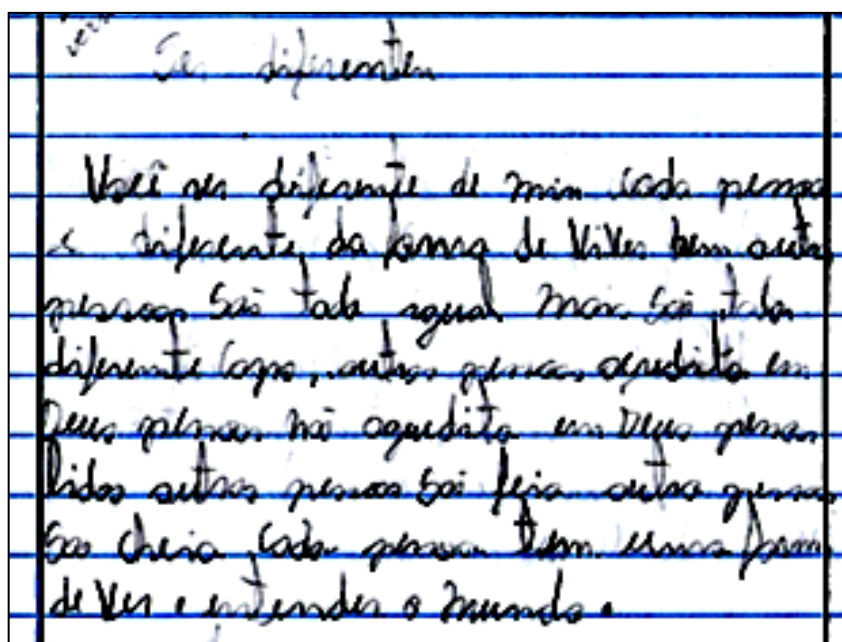 Ser diferenten
Você ser diferente de min cada pessoa
é diferente da forma de Viver bem outr
pessoas São toda egual mais São todas
diferente Copo, outras pessoas acredita em
Deus pessoas não aquedita em Deus pessoas
lidas outras pessoas São feia outra pessoas
São cheia cada pessoa tem uma form
de Ver e entender o mundo.